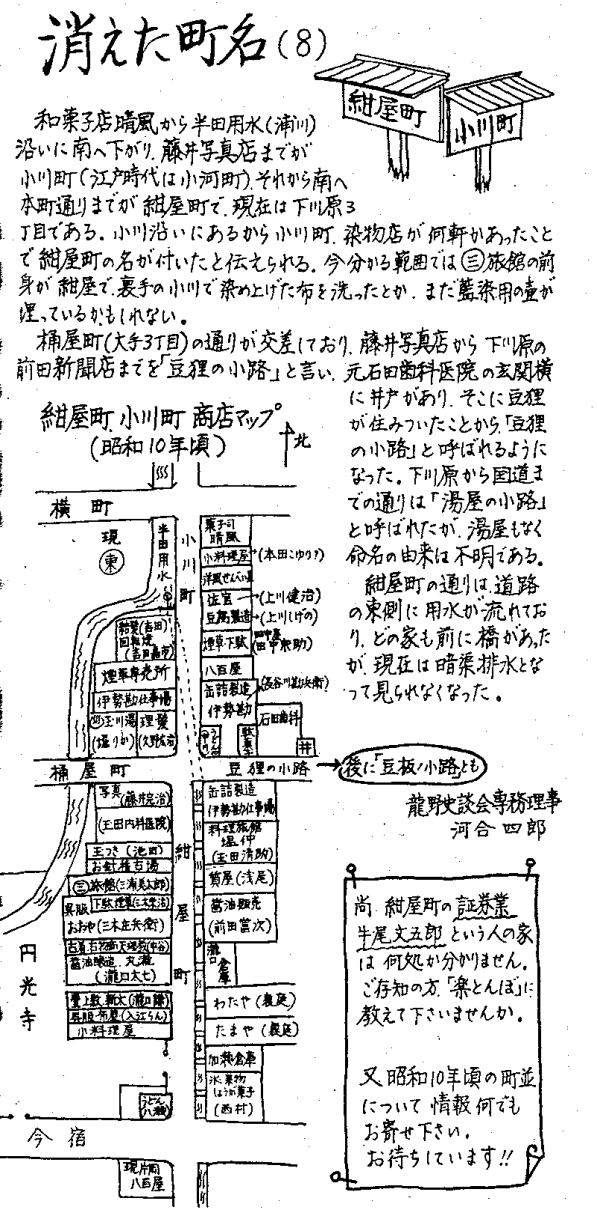 消えた町名(8)
紺屋町
小川町
和菓子店晴風から半田用水(浦川)
沿いに南へ下がり、藤井写真店までが
小川町(江戸時代は小河町)、それから南へ
本町通りまでが紺屋町で、現在は下川原3
丁目である。小川沿いにあるから小川町、染物店が何軒かあったこと
で紺屋町の名が付いたと伝えられる。今分かる範囲では㊂旅館の前
身が紺屋で、裏手の小川で染め上げた布を洗ったとか、まだ藍染用の壷が
埋っているかもしれない。
桶屋町(大手3丁目)の通りが交差しており、藤井写真店から下川原の
前田新聞店までを「豆狸の小路」と言い、元石田歯科医院の玄関横
に井戸があり、そこに豆狸
が住みついたことから、「豆狸
の小路」と呼ばれるように
なった。下川原から国道ま
での通りは「湯屋の小路」
と呼ばれたが、湯屋もなく
命名の由来は不明である。
紺屋町の通りは、道路
の東側に用水が流れてお
り、どの家も前に橋があった
が、現在は暗渠排水とな
って見られなくなった。
紺屋町、小川町商店マップ
(昭和10年頃)
北
横町
現
東
半田用水
小川町
菓子司
晴風
小料理屋
(本田こゆり?)
洋風せんべい屋
佐官
(上川健治)
豆腐製造
(上川しげの)
煙草下駄
田中粂助
八百屋
缶詰製造
伊勢勘
(長谷川勘兵衛)
石田歯科
駄菓子
井
(吉田)
回転焼
煙草専売所
伊勢勘仕事場
玉川湯
(堀りか)
理髪
桶屋町
豆狸の小路
後に「豆板ノ小路」とも
龍野史談会専務理事
河合四郎
写真
(藤井完治)
(玉田内科医院)
玉つき(池田)
お針稽古場
㊂旅館(三浦美太郎)
呉服
おおや(三木庄兵衛)
醤油醸造、丸瀧
(瀧口太七)
呉服布屋(入江らん)
小料理屋
うどん
八瀬
紺屋町
缶詰製造
伊勢勘仕事場
料理旅館
堀仲
(玉田清助)
質屋(浅尾)
醤油販売
(前田富次)
瀧口倉庫
わたや(義延)
たまや(義延)
加瀬倉庫
氷、果物
しょうが菓子
(西村)
円光寺
今宿
現片岡
八百屋
尚、紺屋町の証券業
牛尾文五郎という人の家
は何処か分かりません。
ご存知の方、「楽とんぼ」に
教えて下さいませんか。
又、昭和10年頃の町並
について情報何でも
お寄せ下さい。
お待ちしています!!